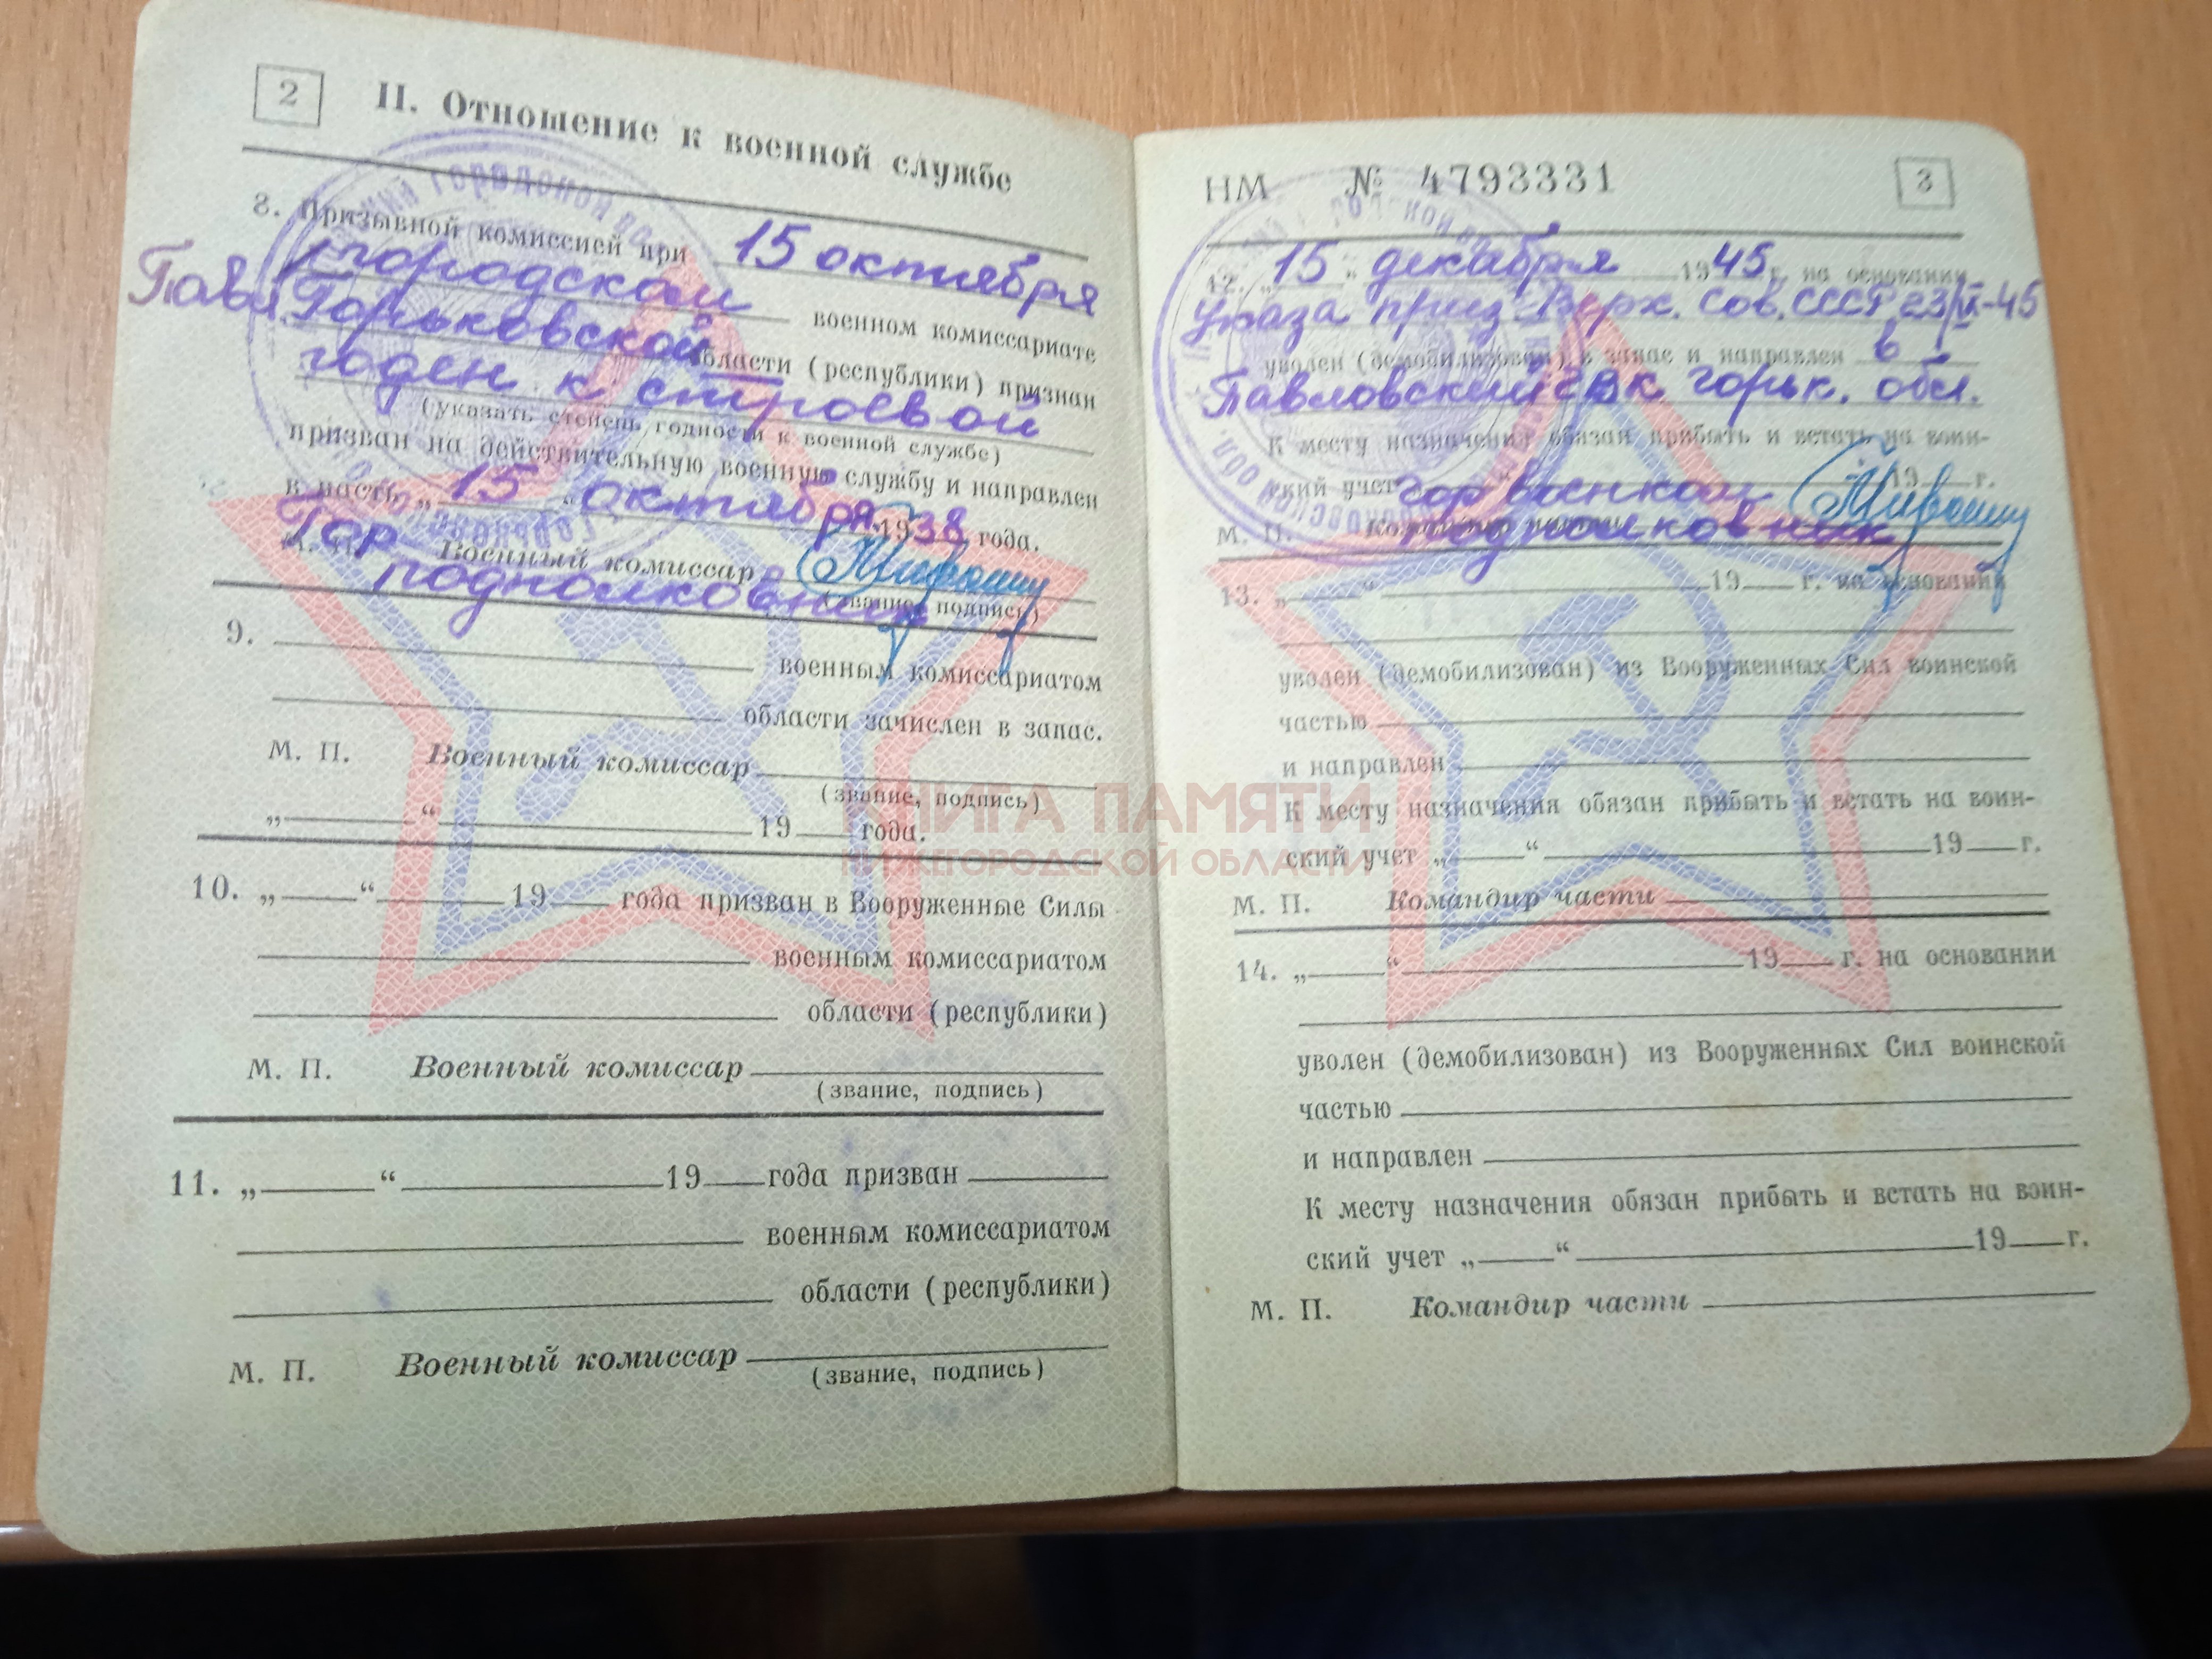 2
II. Отношение к военной службе
8. Призывной комиссией при 15 октября
Павл. городском военном комиссариате
Горьковской области (республики) признан
годен к строевой
(указать степень годности к военной службе)
призван на действительную военную службу и направлен
в часть „ 15 “ октября 1938 года.
М. П. Гор Военный комиссар
подполковник (звание, подпись)
9.
военным комиссариатом
области зачислен в запас.
М. П. Военный комиссар
(звание, подпись)
„ “ 19 года.
10. „ “ 19 года призван в Вооруженные Силы
военным комиссариатом
области (республики)
М. П. Военный комиссар
(звание, подпись)
11. „ “ 19 года призван
военным комиссариатом
области (республики)
М. П. Военный комиссар
(звание, подпись)
НМ № 4793331
3
12. „ 15 “ декабря 1945 г. на основании
Указа през. Верх. Сов. СССР 23/IX-45
уволен (демобилизован) в запас и направлен в
Павловский ГВК горьк. обл.
К месту назначения обязан прибыть и встать на воин-
ский учет 19 г.
горвоенком
М. П. Командир части
подполковник
13. „ “ 19 г. на основании
уволен (демобилизован) из Вооруженных Сил воинской
частью
и направлен
К месту назначения обязан прибыть и встать на воин-
ский учет „ “ 19 г.
М. П. Командир части
14. „ “ 19 г. на основании
уволен (демобилизован) из Вооруженных Сил воинской
частью
и направлен
К месту назначения обязан прибыть и встать на воин-
ский учет „ “ 19 г.
М. П. Командир части
КНИГА ПАМЯТИ
НИЖЕГОРОДСКОЙ ОБЛАСТИ